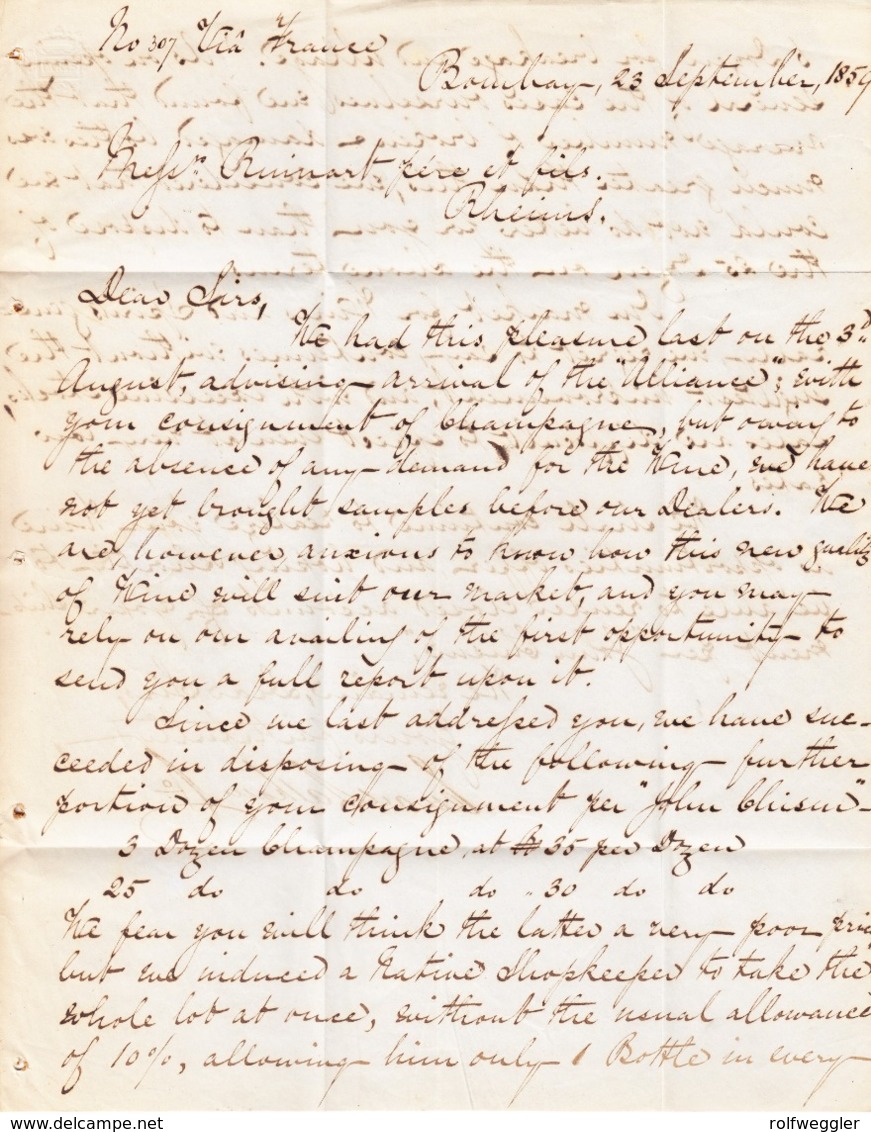 No 307 Viâ France
Bombay, 23 September, 1859
Messrs Ruinart père et fils.
Rheims.
Dear Sirs,
We had this pleasure last on the 3d
August, advising arrival of the "Alliance", with
your consignment of Champagne, but owing to
the absence of any demand for the Wine, we have
not yet brought samples before our Dealers. We
are, however anxious to know how this new quality
of Wine will suit our market, and you may
rely on our availing of the first opportunity to
send you a full report upon it.
Since we last addressed you, we have suc-
ceeded in disposing of the following further
portion of your consignment per "John
3 Dozen Champagne, at Rs 35 per Dozen
25 do do do " 30 do do
We fear you will think the latter a very poor price
but we induced a Native Shopkeeper to take the
whole lot at once, without the usual allowance
of 10%, allowing him only 1 Bottle in every
delcampe.net
rolfweggler